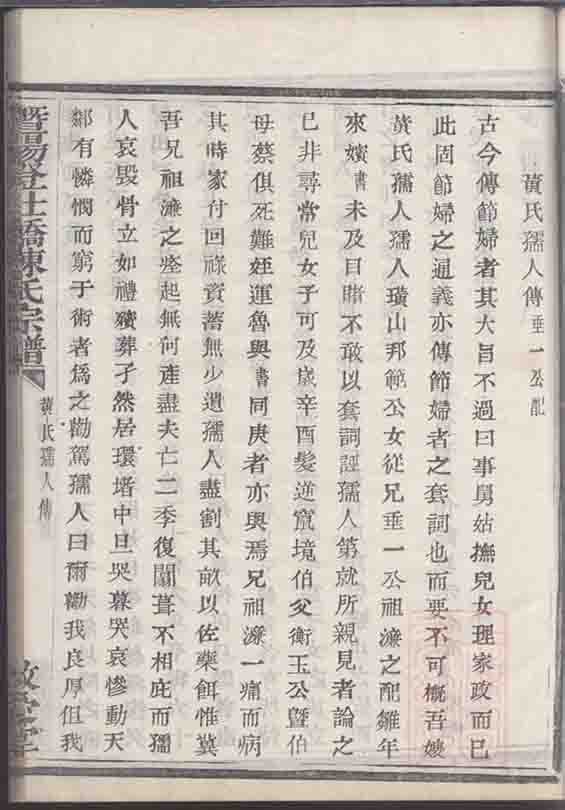 黃氏孺人傳 垂一公配
古今傳節婦者其大旨不過曰事舅姑撫兒女理家政而已
此固節婦之通義亦傳節婦者之套詞也而要不可概吾嫂
黃氏孺人孺人璜山邦範公女從兄垂一公祖濂之配雖年
來嬪書未及目睹不敢以套詞誣孺人第就所親見者論之
已非尋常兒女子可及歲辛酉髮逆竄境伯父衡玉公暨伯
母蔡俱死難姪運魯與書同庚者亦與焉兄祖濂一痛而病
其時家付回祿資蓄無少遺孺人盡割其畝以佐藥餌惟冀
吾兄祖濂之痊起無何產盡夫亡二季復鬩葺不相庇而孺
人哀毀骨立如禮殯葬孑然居環堵中旦哭暮哭哀慘動天
鄰有憐憫而窮于術者為之勸駕孺人曰爾勸我良厚但我
暨陽登仕橋陳氏宗譜
黃氏孺人傳